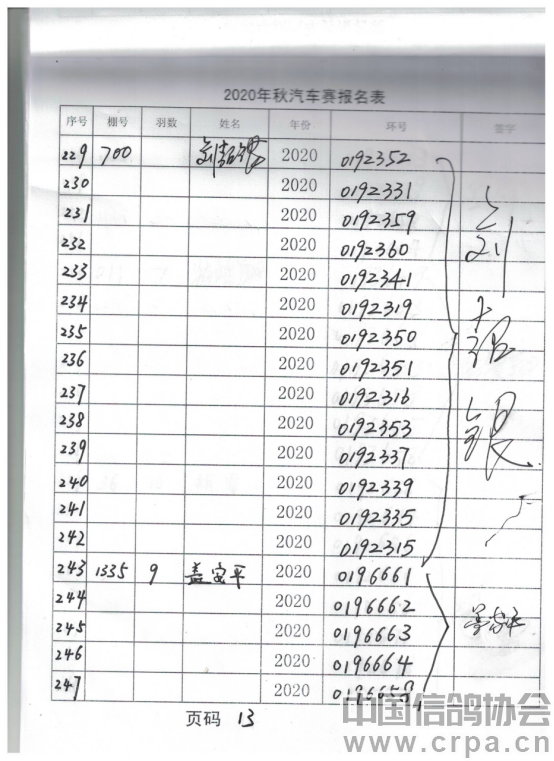 2020年秋汽车赛报名表
序号 棚号 羽数 姓名 年份 环号 签字
229 700 刘超银 2020 0192352
230 2020 0192331
231 2020 0192359
232 2020 0192360
233 2020 0192341
234 2020 0192319
235 2020 0192350
236 2020 0192351
237 2020 0192316
238 2020 0192353
239 2020 0192337
240 2020 0192339
241 2020 0192335
242 2020 0192315
243 1335 9 盖安平 2020 0196661
244 2020 0196662
245 2020 0196663
246 2020 0196664
247 2020
刘超银
盖安平
页码 13
中国信鸽协会
www.crpa.cn